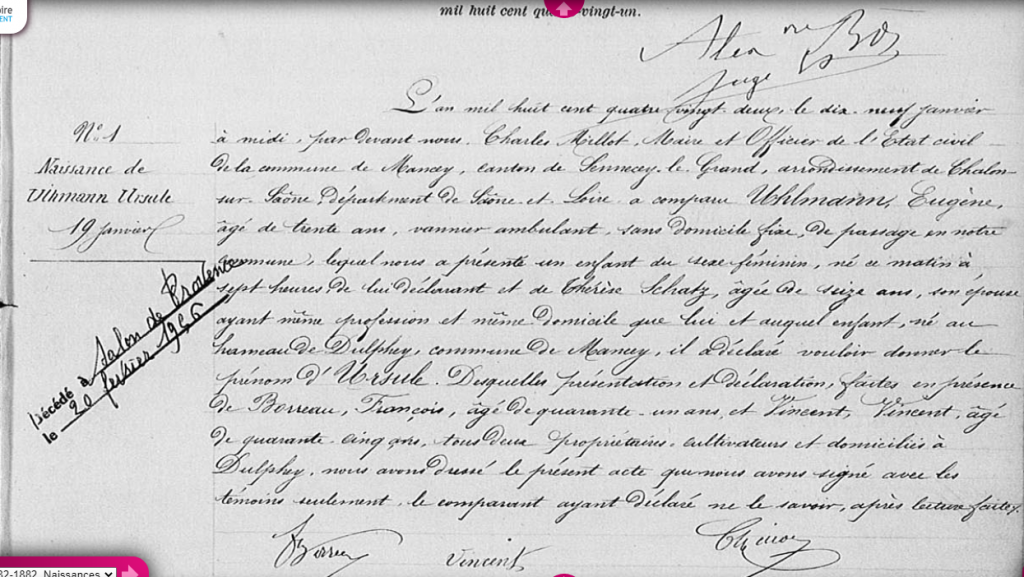 oire
ENT
mil huit cent qu vingt-un.
Juge
L'an mil huit cent quatre vingt deux, le dix neuf janvier
à midi, par devant nous, Charles Millot, Maire et Officier de l'Etat civil
de la commune de Mancey, canton de Sennecey-le-Grand, arrondissement de Chalon-
sur-Saône, département de Saône-et-Loire a comparu Uhlmann, Eugène,
âgé de trente ans, vannier ambulant, sans domicile fixe, de passage en notre
commune, lequel nous a présenté un enfant du sexe féminin, né ce matin à
sept heures, de lui déclarant et de Thérèse Schatz, âgée de seize ans, son épouse
ayant même profession et même domicile que lui et auquel enfant, né au
hameau de Dulphey, commune de Mancey, il a déclaré vouloir donner le
prénom d'Ursule. Desquelles présentation et déclaration, faites en présence
de Borreau, François, âgé de quarante-un ans, et Vincent, Vincent, âgé
de quarante-cinq ans, tous deux propriétaires-cultivateurs et domiciliés à
Dulphey, nous avons dressé le présent acte que nous avons signé avec les
témoins seulement, le comparant ayant déclaré ne le savoir, après lecture faite.
Vincent
N° 1
Naissance de
Uhlmann Ursule
19 janvier
Décédé à Salon de Provence
le 20 février 1956
82-1882, Naissances